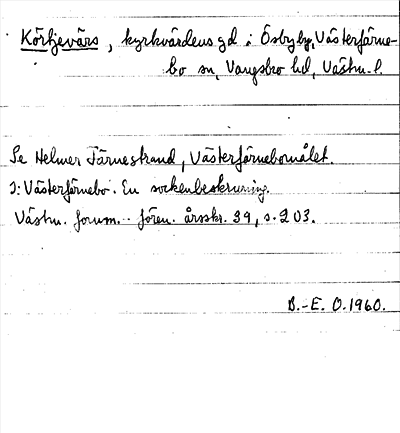 Körtjevärs, kyrkvärdens gd i Ösby by, Västerfärne-
bo sn, Vangsbro hd, Västm. l.
Se Helmer Tärnestrand, Västerfärnebomålet.
I: Västerfärnebo. En sockenbeskrivning.
Västm. fornm. fören. årsskr. 39, s. 203.
B.-E. O. 1960.